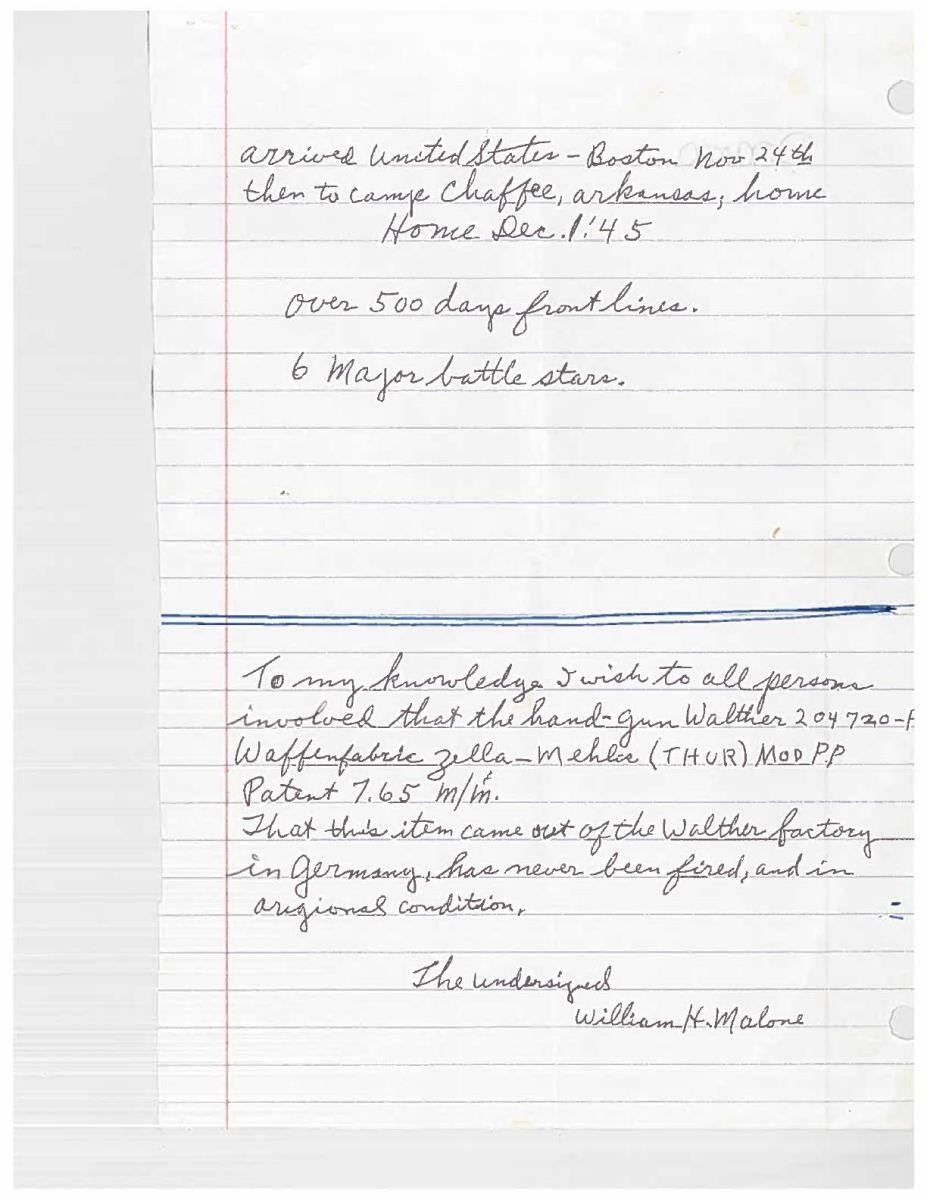 arrived United States - Boston Nov 24th
then to camp Chaffee, arkansas, home
Home Dec. 1. '45
over 500 days front lines.
6 Major battle stars.
To my knowledge I wish to all persons
involved that the hand-gun Walther 204720-P
Waffenfabric Zella-Mehlis (THUR) MOD PP
Patent 7.65 m/m.
That this item came out of the Walther factory
in Germany, has never been fired, and in
origional condition.
The undersigned
William H. Malone